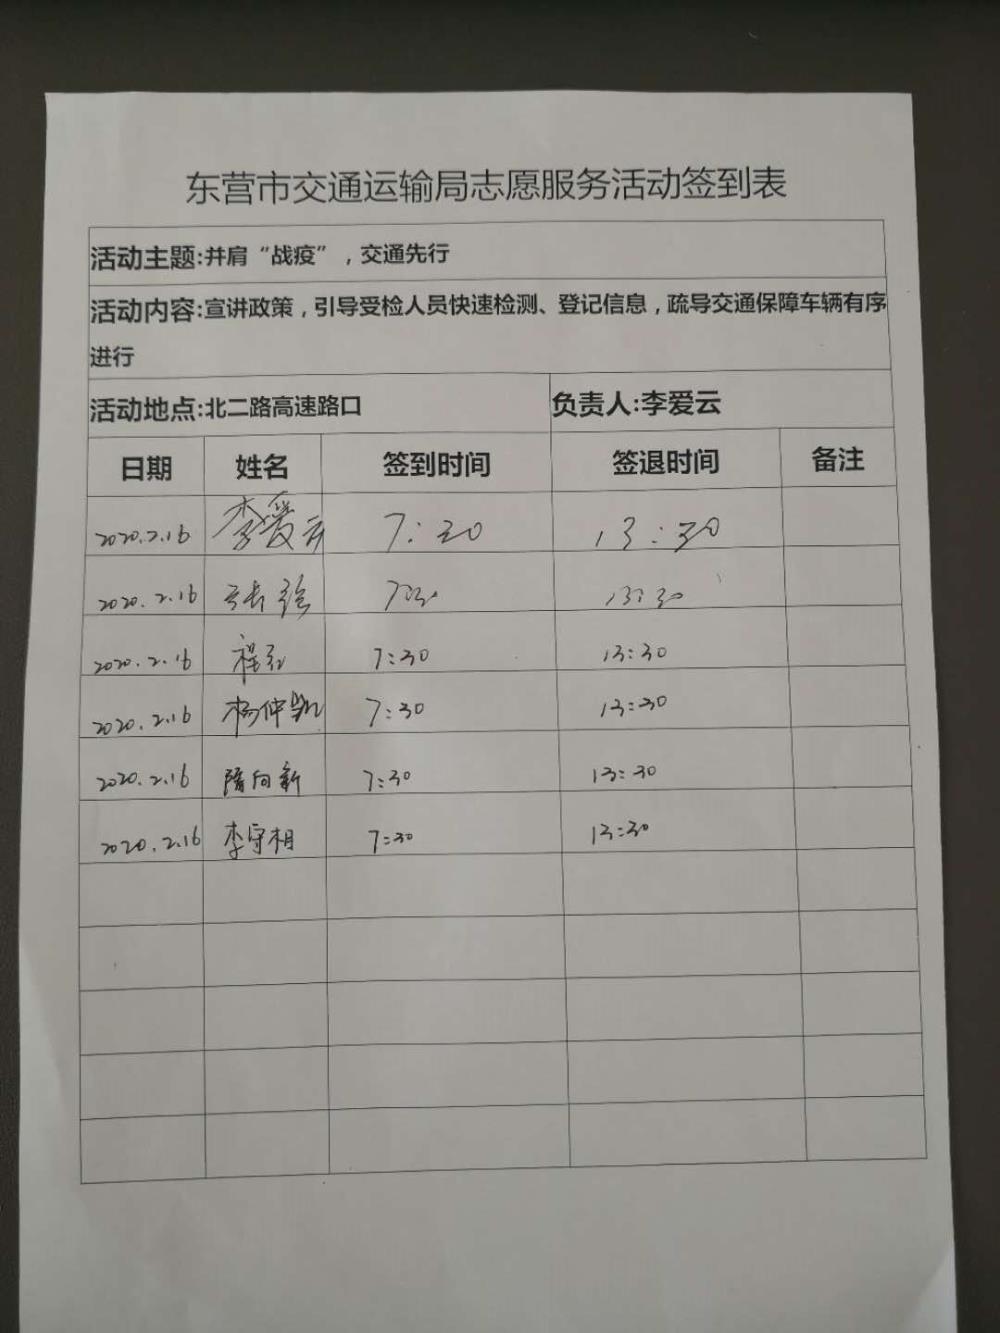 东营市交通运输局志愿服务活动签到表
活动主题:并肩“战疫”，交通先行
活动内容:宣讲政策，引导受检人员快速检测、登记信息，疏导交通保障车辆有序
进行
活动地点:北二路高速路口 负责人:李爱云
日期 姓名 签到时间 签退时间 备注
2020.2.16 李爱云 7:30 13:30
2020.2.16 张强 7:30 13:30
2020.2.16 7:30 13:30
2020.2.16 杨仲凯 7:30 13:30
2020.2.16 隋向新 7:30 13:30
2020.2.16 李守相 7:30 13:30